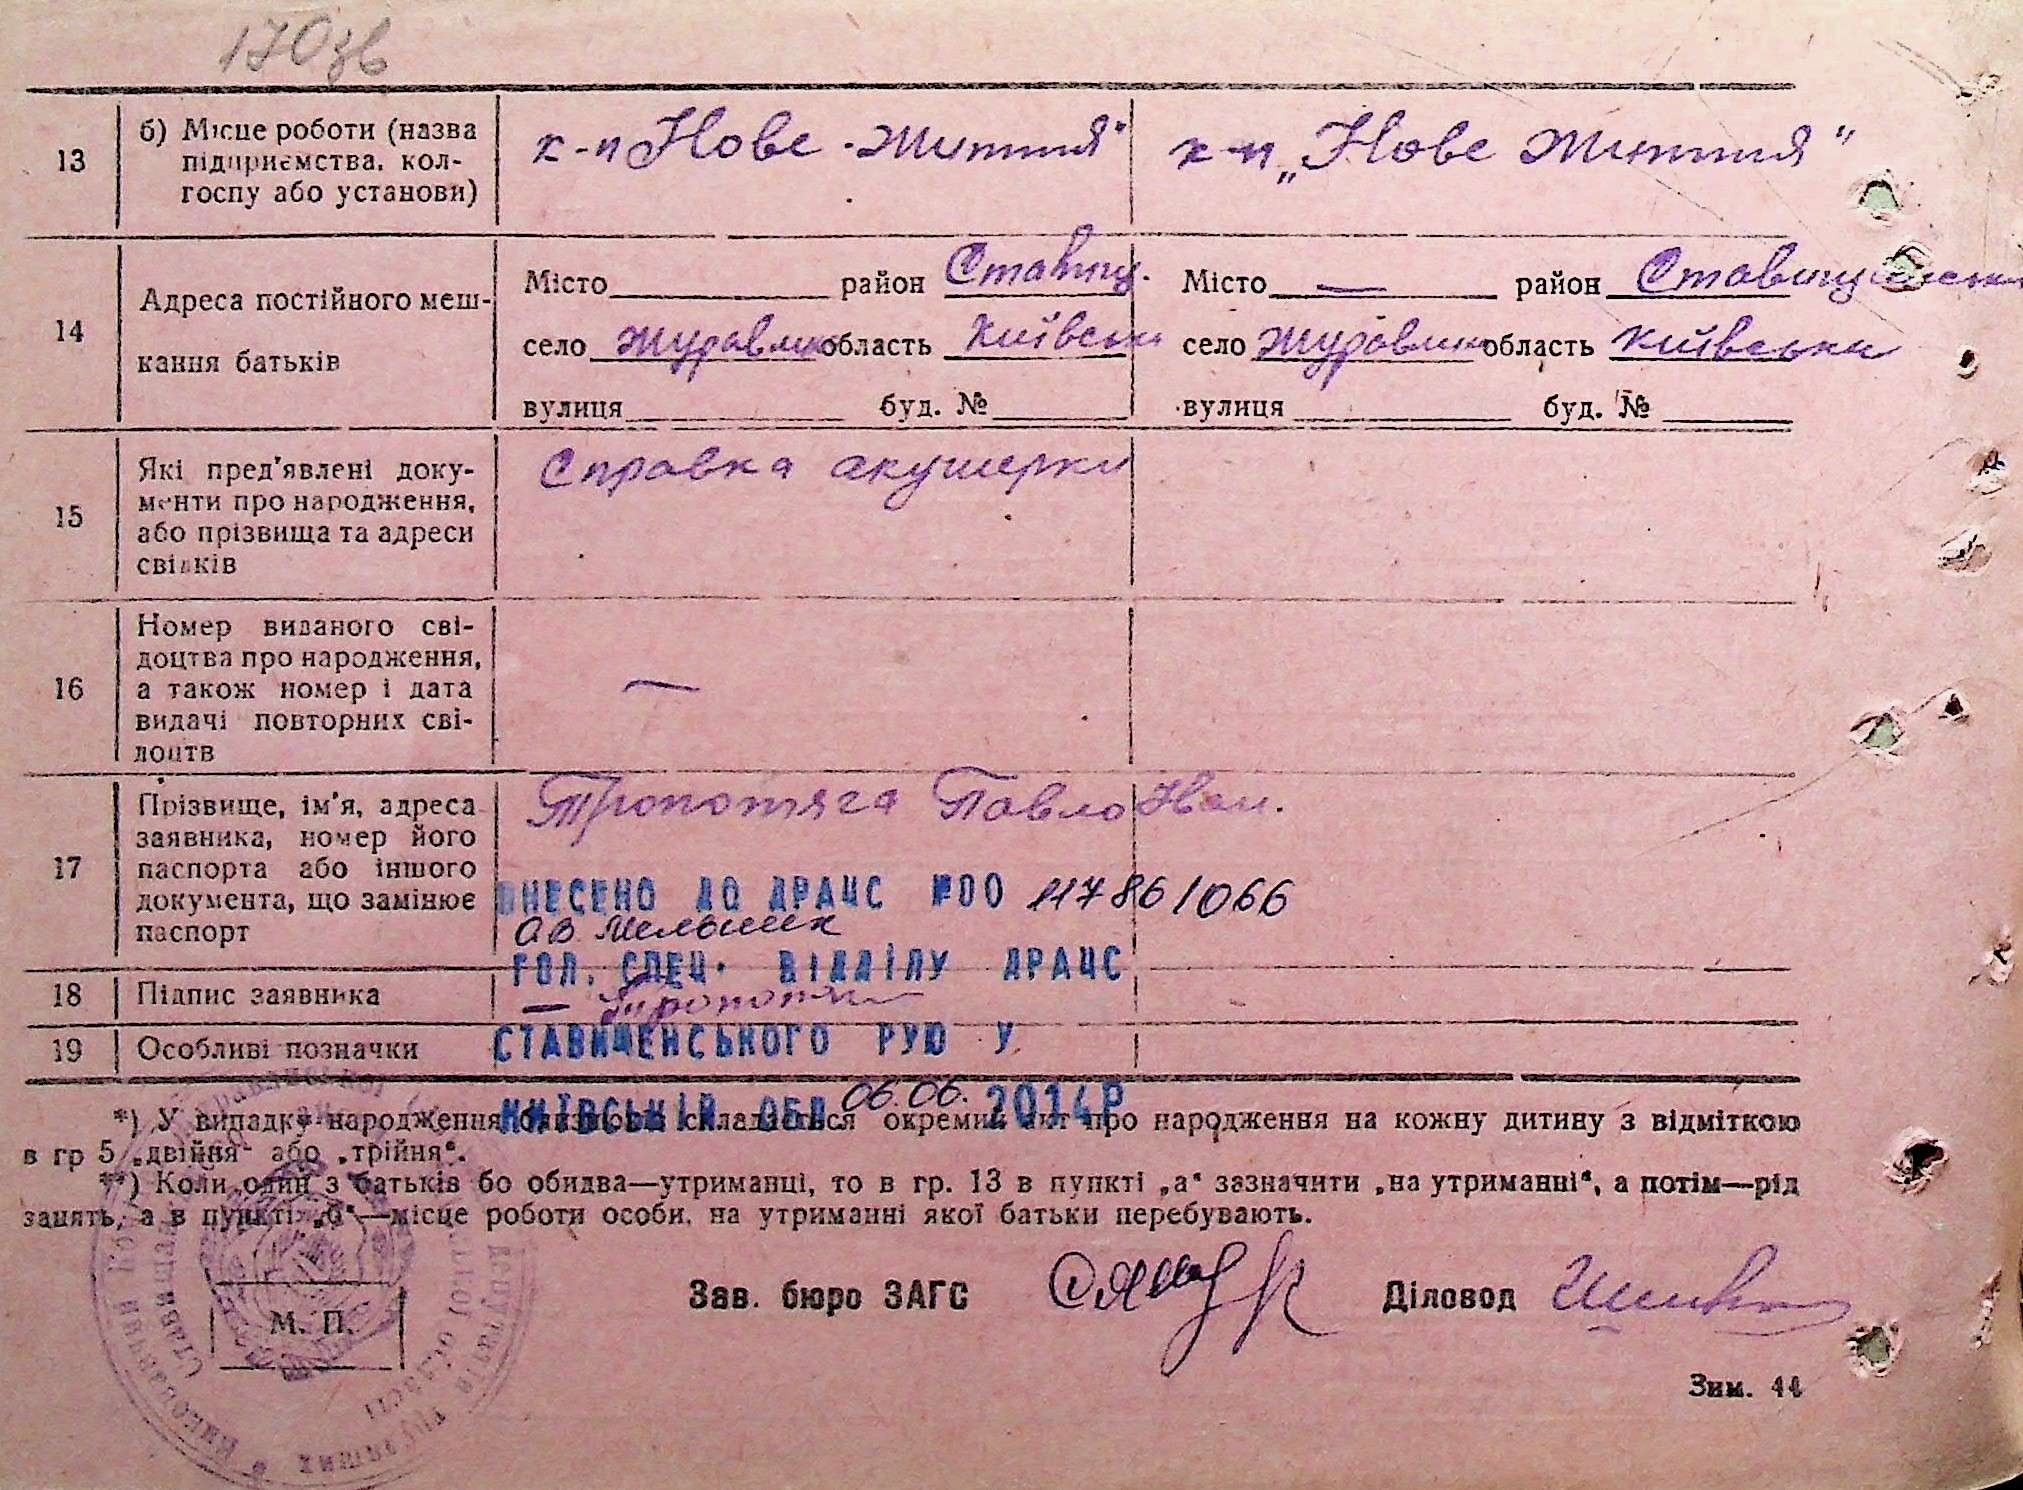 170зв
13 б) Місце роботи (назва підприємства, кол-госпу або установи) к-п "Нове Життя" к-п „Нове Життя"
14 Адреса постійного меш-кання батьків
Місто район Ставищ. Місто — район Ставищенськ
село Журавлих область Київськ село Журавлих область Київська
вулиця буд. № вулиця буд. №
15 Які пред'явлені доку-
менти про народження,
або прізвища та адреси
свідків
Справка акушерки
16 Номер виданого сві-
доцтва про народження,
а також номер і дата
видачі повторних сві-
доцтв
—
17 Прізвище, ім'я, адреса
заявника, номер його
паспорта або іншого
документа, що замінює
паспорт
Тропотяга Павло Іван.
ВНЕСЕНО ДО ДРАЦС №00 11786/066
О.В. Мельник
ГОЛ. СПЕЦ. ВІДДІЛУ ДРАЦС
18 Підпис заявника — Тропотяг
19 Особливі позначки СТАВИЩЕНСЬКОГО РУЮ У
КИЇВСЬКІЙ ОБЛ 06.06. 2014Р
*) У випадку народження близнюків складається окремий акт про народження на кожну дитину з відміткою
в гр 5 „двійня" або „трійня".
**) Коли один з батьків бо обидва—утриманці, то в гр. 13 в пункті „а" зазначити „на утриманні", а потім—рід
занять, а в пункті „б"—місце роботи особи, на утриманні якої батьки перебувають.
М. П. Зав. бюро ЗАГС Діловод
Зим. 44